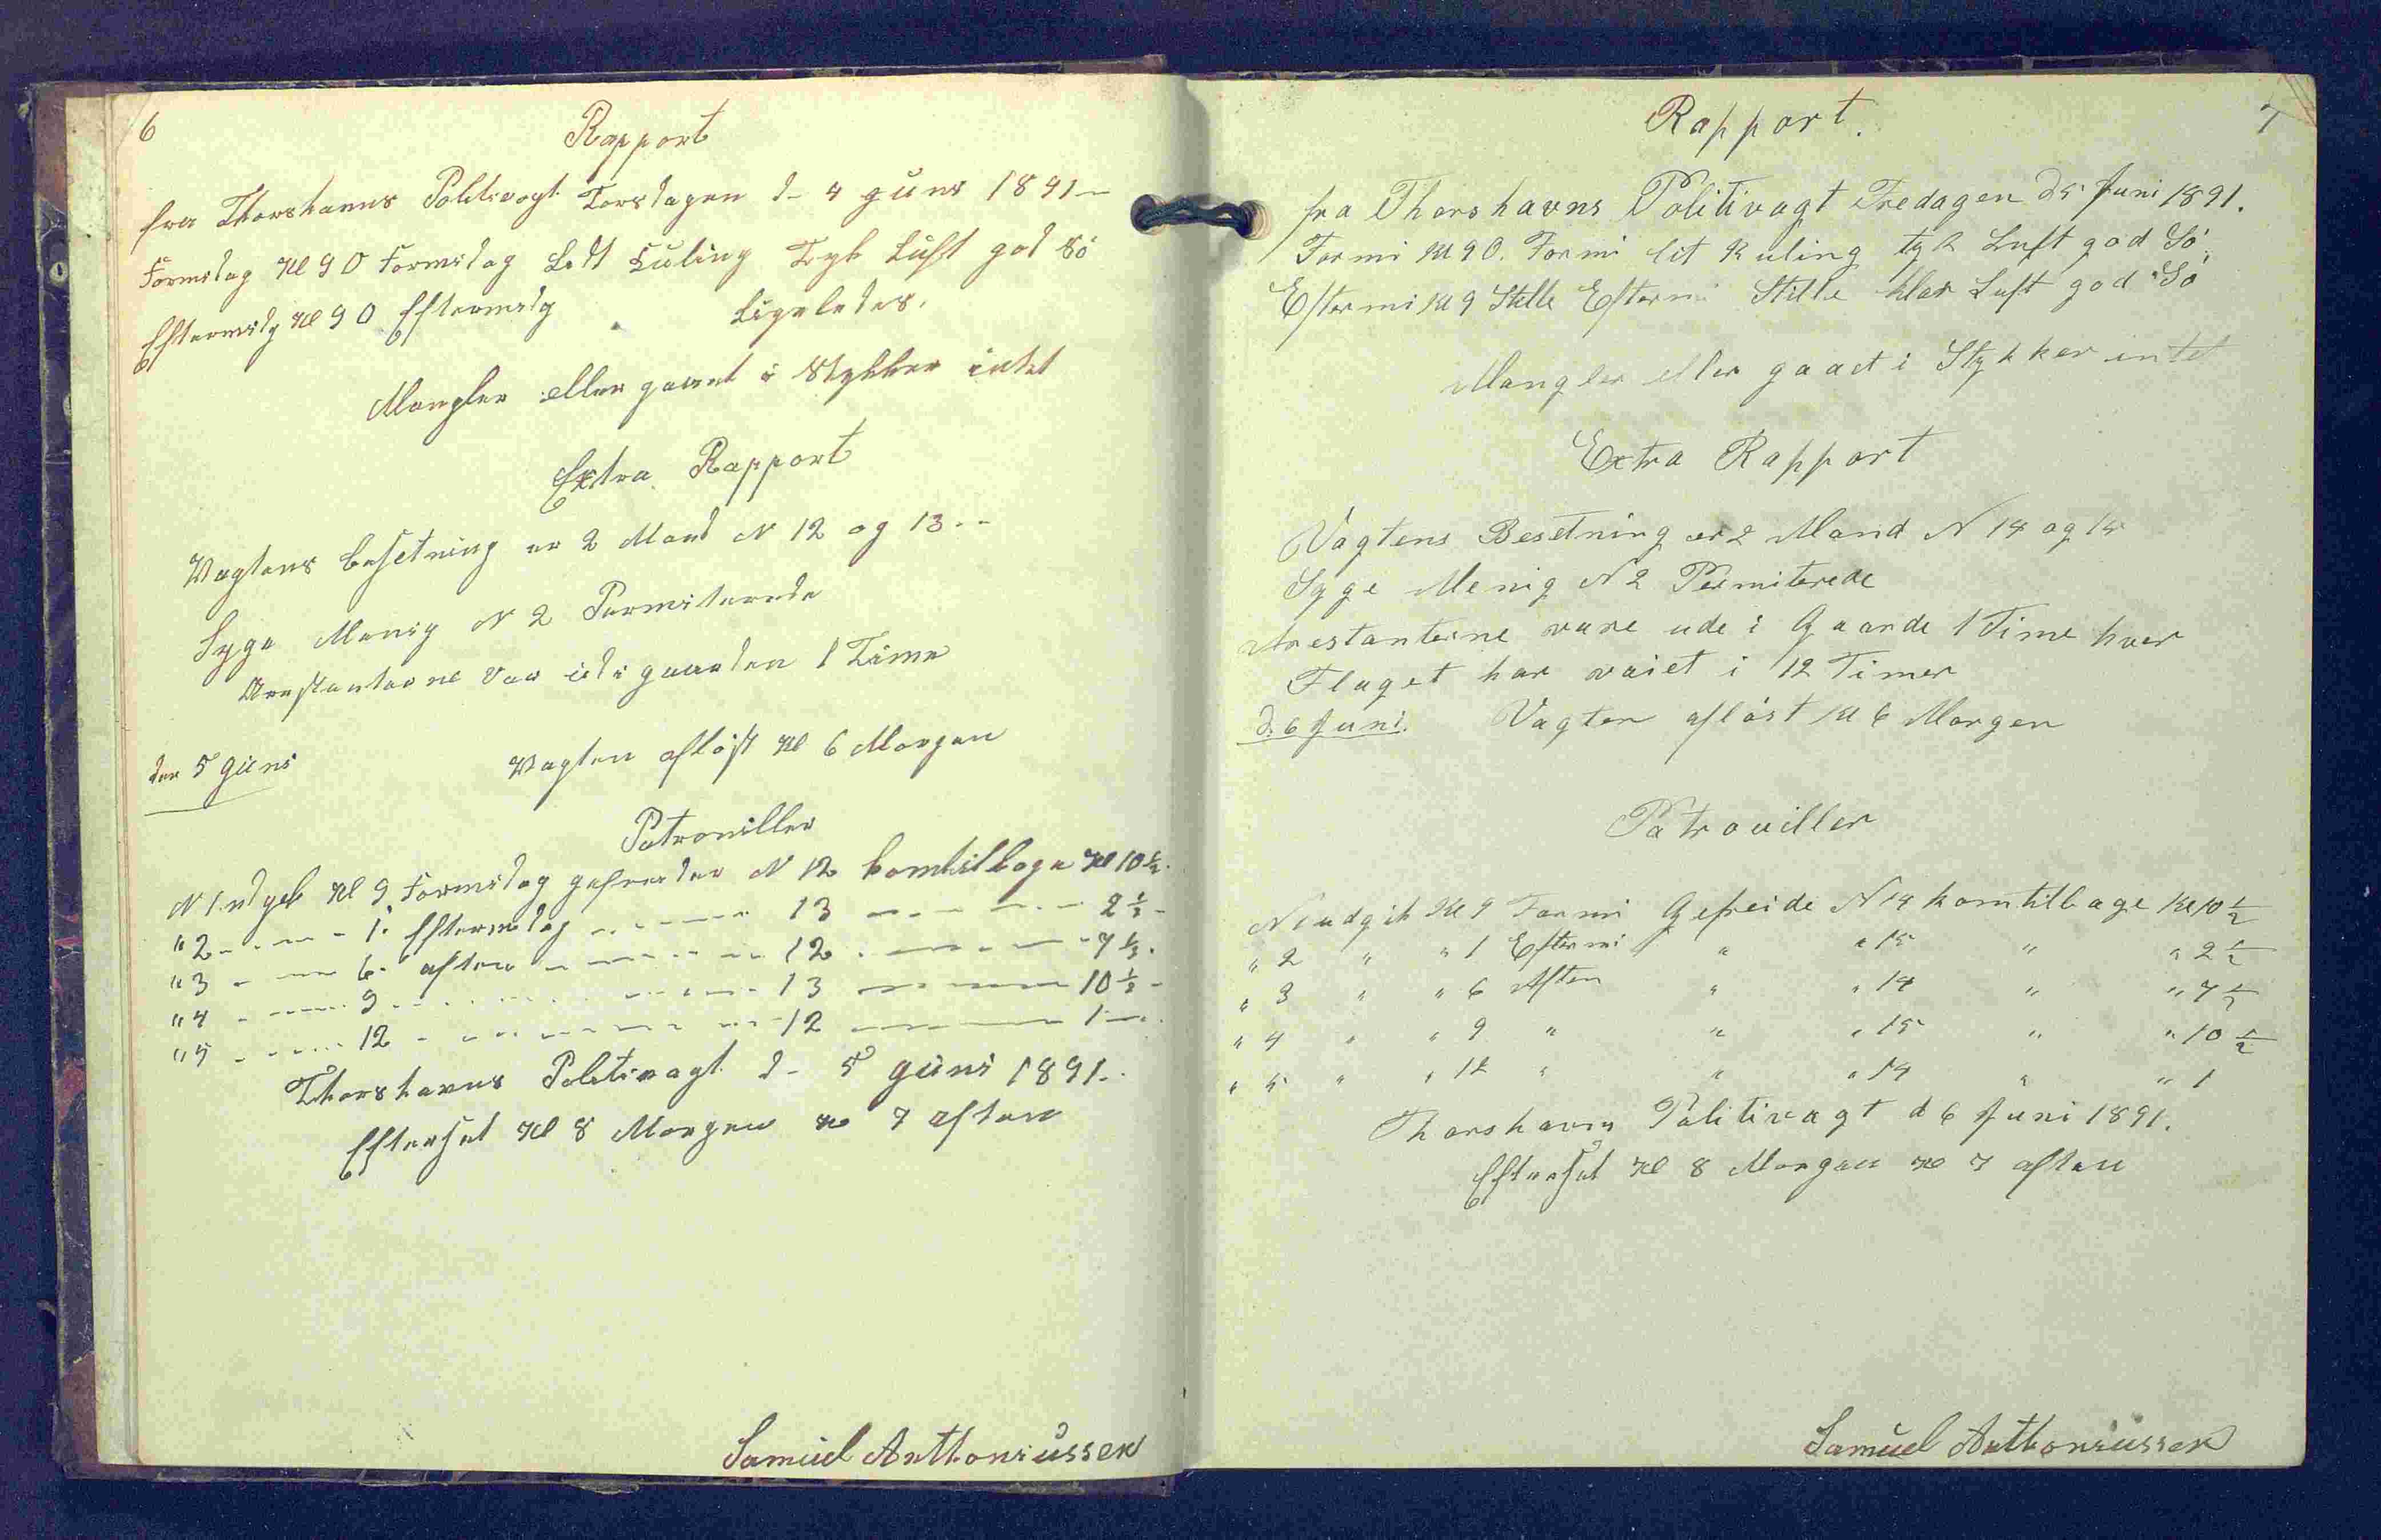 6
Rapport
fra Thorshavns Politivagt Torsdagen d– 4 Juni 1891–
Formidag Kl 9 O Formidag Lidt Kuling Tyk Luft god Sö
Eftermidg Kl 9 O Eftermidg Ligeledes.
Mangler eller gaaet i Stykker intet
Extra Rapport
Vagtens besetning er 2 Mand N 12 og 13 --
Syge Menig N 2 Permiterede
Arestanterne var ud i gaarden 1 Time
den 5 Juni Vagten aflöst Kl 6 Morgen
Patrouiller
N 1 udgik Kl 9 Formidag gefreider N 12 kom tilbage Kl 10 1/2.
" 2 - - - - 1. Eftermidag - - - - 13 - - - - - 2 1/2 -
" 3 - - - 6. aften - - - - - 12 . - - - - 7 1/2.
" 4 - - - 9 - - - - - - - 13 - - - - 10 1/2 -
" 5 - - - 12 - - - - - - - 12 - - - - 1 - .
Thorshavns Politivagt d– 5 Juni 1891.
Efterset Kl 8 Morgen Kl 7 aften
Samuel Anthoniussen
7
Rapport.
fra Thorshavns Politivagt Fredagen D5 Juni 1891.
Formi Kl 9 O. Formi lit Kuling tyk Luft god Sö
Eftermi Kl 9 Stille Eftermi Stille klar Luft god Sö
Mangler eller gaaet i Stykker intet
Extra Rapport
Vagtens Besetning er 2 Mand N 14 og 15
Syge Menig N 2 Permiterede
Arestanterne vare ude i Gaarde 1 Time hver
Flaget har vaiet i 12 Timer
d. 6 Juni. Vagten aflöst Kl 6 Morgen
Patrouiller
N1 udgik Kl 9 Formi Gefreide N 14 kom tilbage Kl 10 1/2
" 2 " " 1 Eftermi " " 15 " " 2 1/2
" 3 " " 6 Aften " " 14 " " 7 1/2
" 4 " " 9 " " " 15 " " 10 1/2
" 5 " " 12 " " " 14 " " 1
Thorshavns Politivagt d 6 Juni 1891.
Efterset Kl 8 Morgen Kl 7 aften
Samuel Anthoniussen